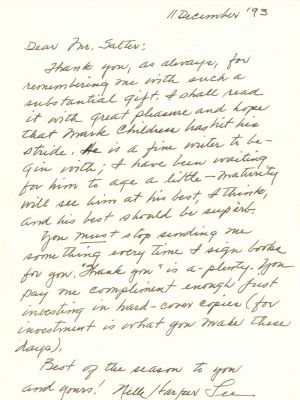 11 December '93
Dear Mr. Salter:
Thank you, as always, for
remembering me with such a
substantial gift. I shall read
it with great pleasure and hope
that Mark Childress has hit his
stride. He is a fine writer to be-
gin with; I have been waiting
for him to age a little — maturity
will see him at his best, I think,
and his best should be superb.
You must stop sending me
something every time I sign books
for you. "Thank you" is a-plenty. You
pay me compliment enough just
investing in hard-cover copies (for
investment is what you make these
days).
Best of the season to you
and yours! Nelle Harper Lee